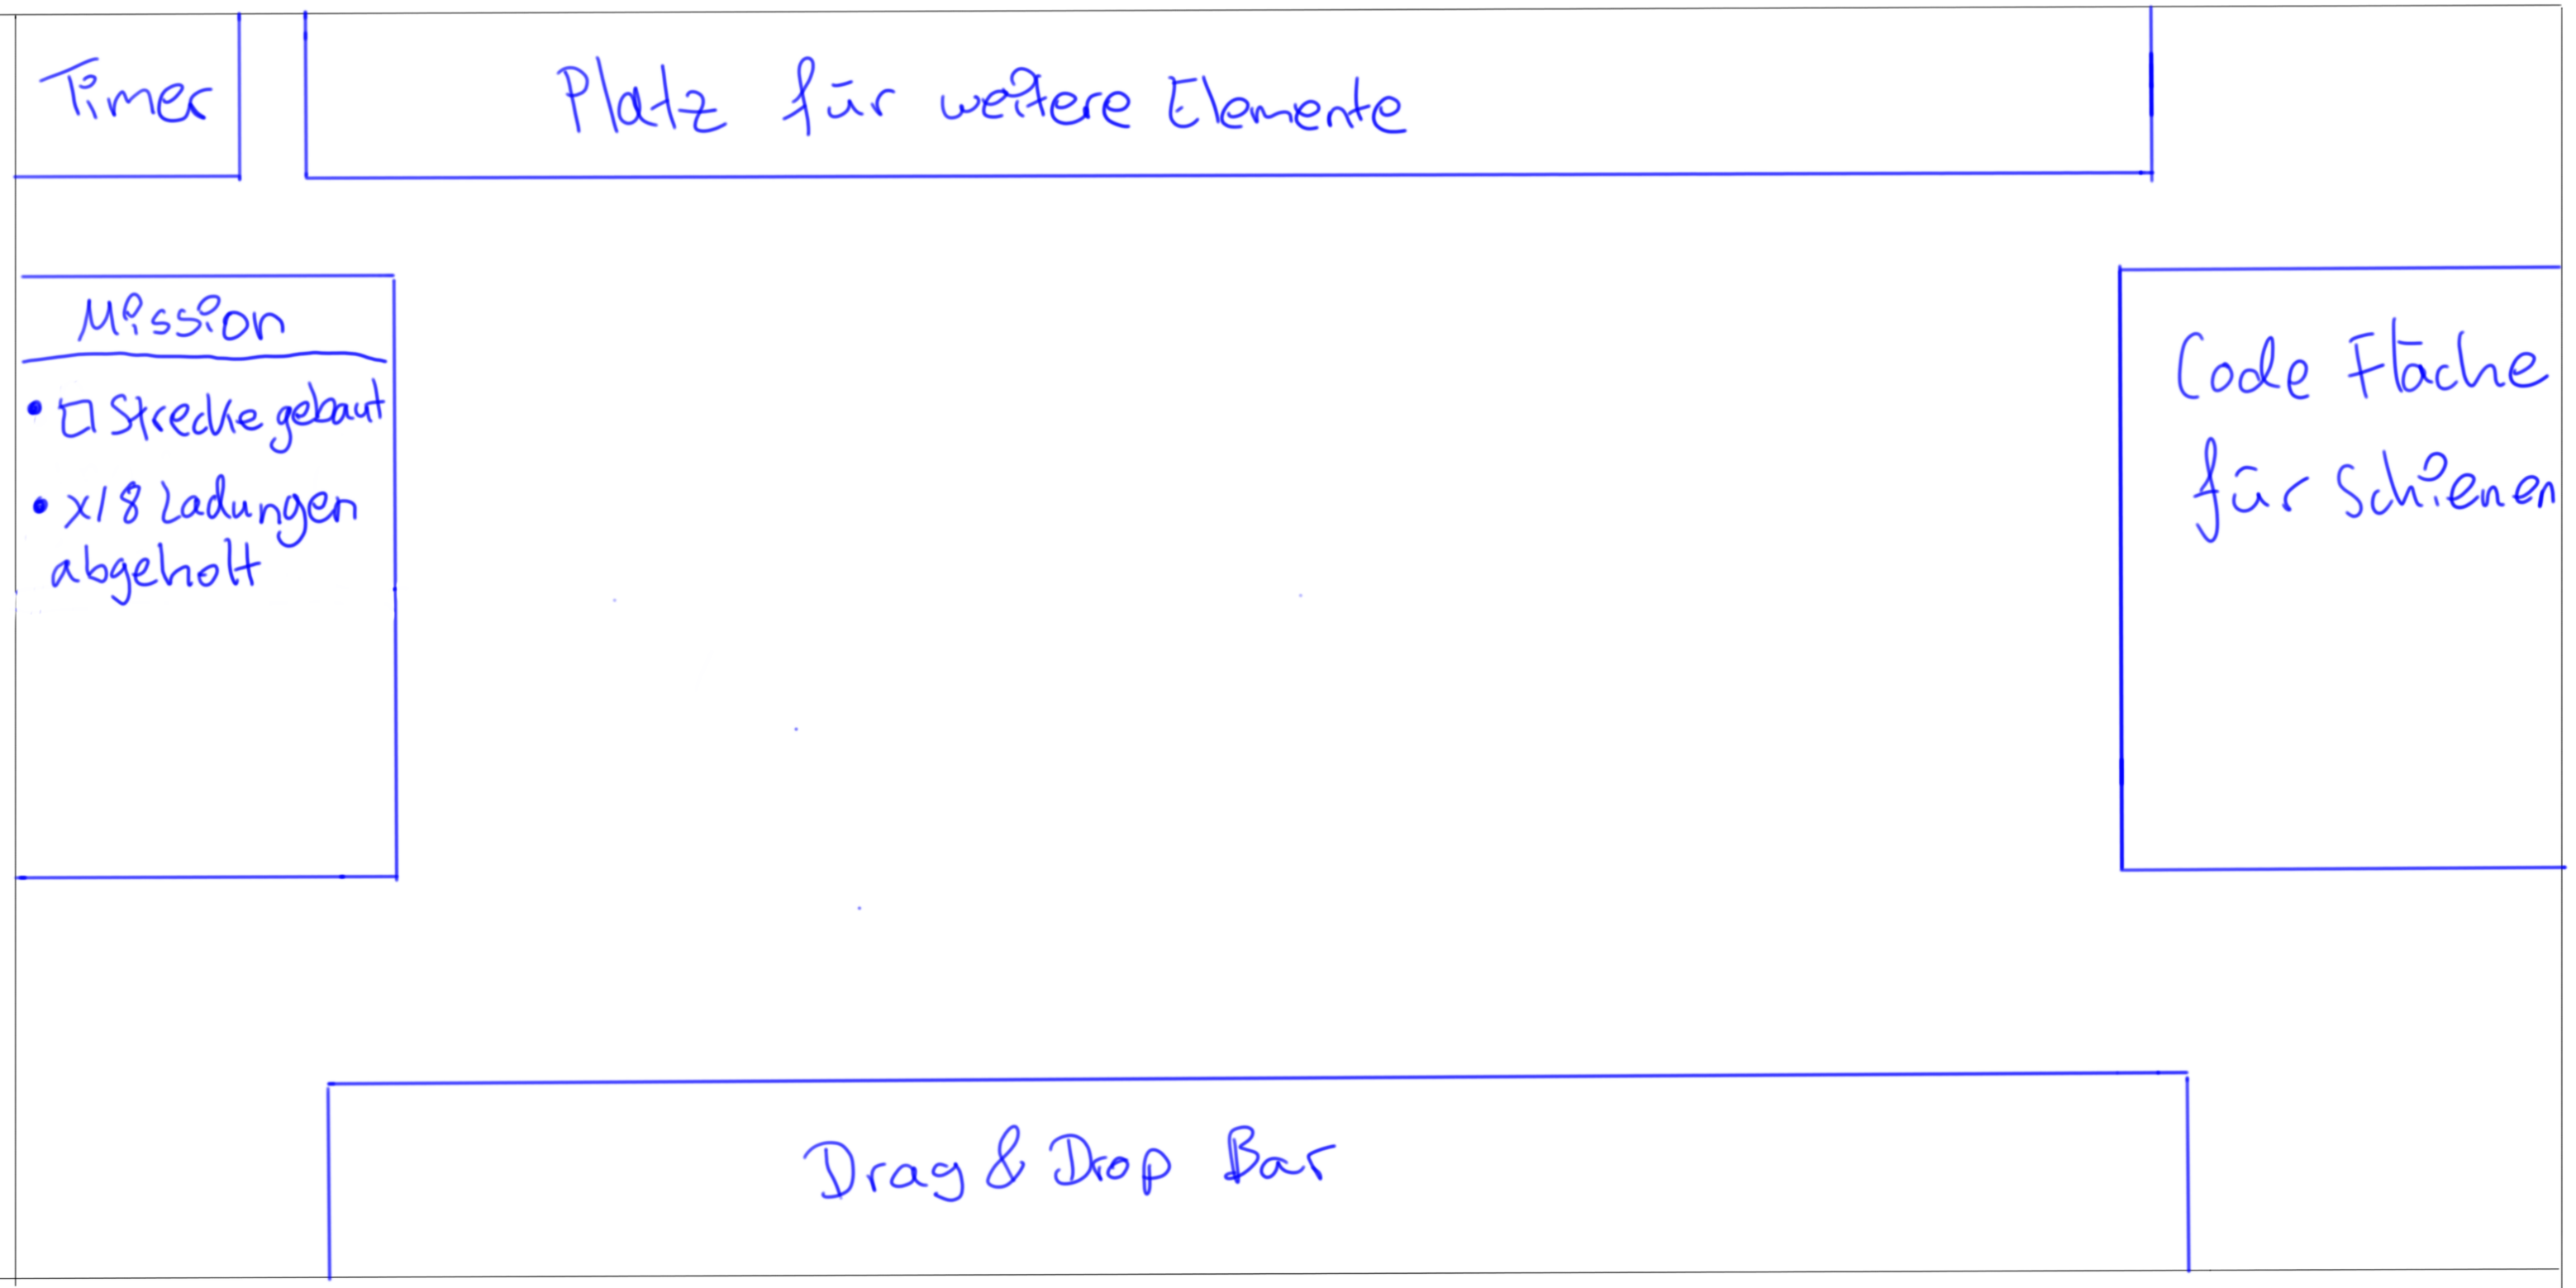 Timer
Platz für weitere Elemente
Mission
• □ Strecke gebaut
• x/8 Ladungen
abgeholt
Code Fläche
für Schienen
Drag & Drop Bar